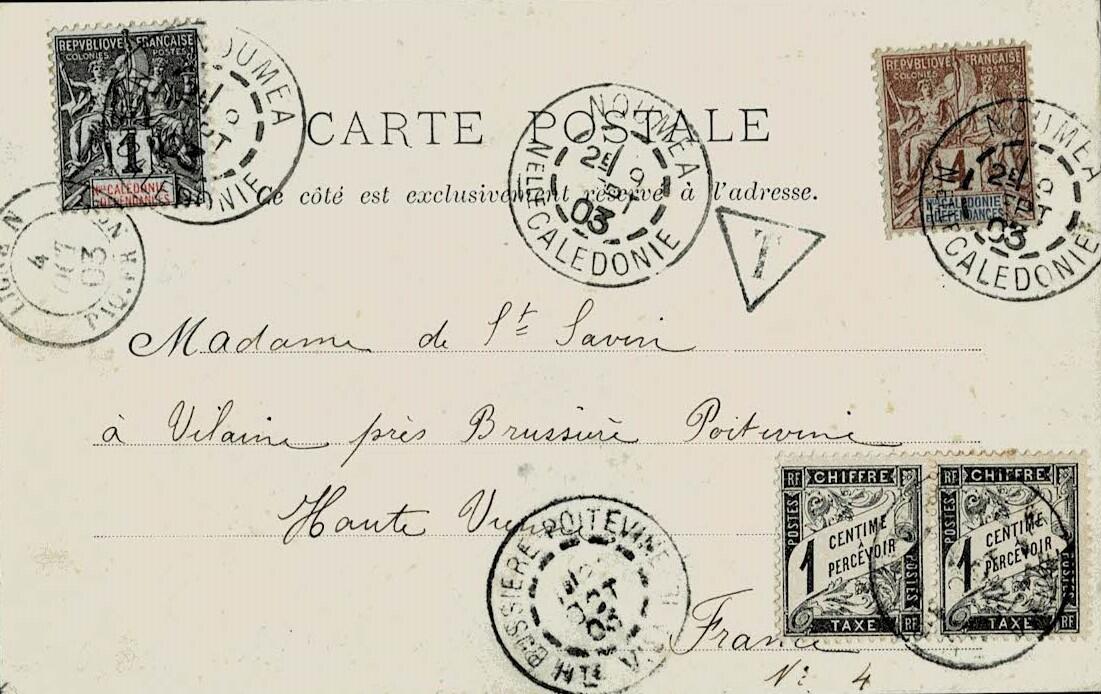 REPVBLIQVE FRANÇAISE
COLONIES POSTES
1
Nlle CALEDONIE
ET DEPENDANCES
NOUMEA
REPVBLIQVE FRANÇAISE
COLONIES POSTES
4
Nlle CALEDONIE
ET DEPENDANCES
NOUMEA
2E
9
SEPT
03
CALEDONIE
CARTE POSTALE
Ce côté est exclusivement réservé à l'adresse.
NOUMEA
2E
9
03
NELLE CALEDONIE
T
LIGNE N
4
OCT
03
PAQ. FR
Madame de St Savin
à Vilaine près Brussière Poitevine
Haute
France
No 4
BUSSIERE-POITEVINE
RF CHIFFRE RF
POSTES
1 CENTIME
À
PERCEVOIR
POSTES
TAXE RF
RF CHIFFRE RF
POSTES
1 CENTIME
À
PERCEVOIR
POSTES
TAXE RF